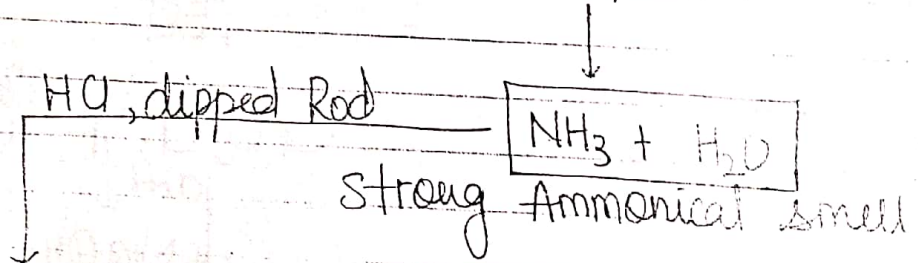 HCl, dipped Rod
NH3 + H2O
Strong Ammonical smell